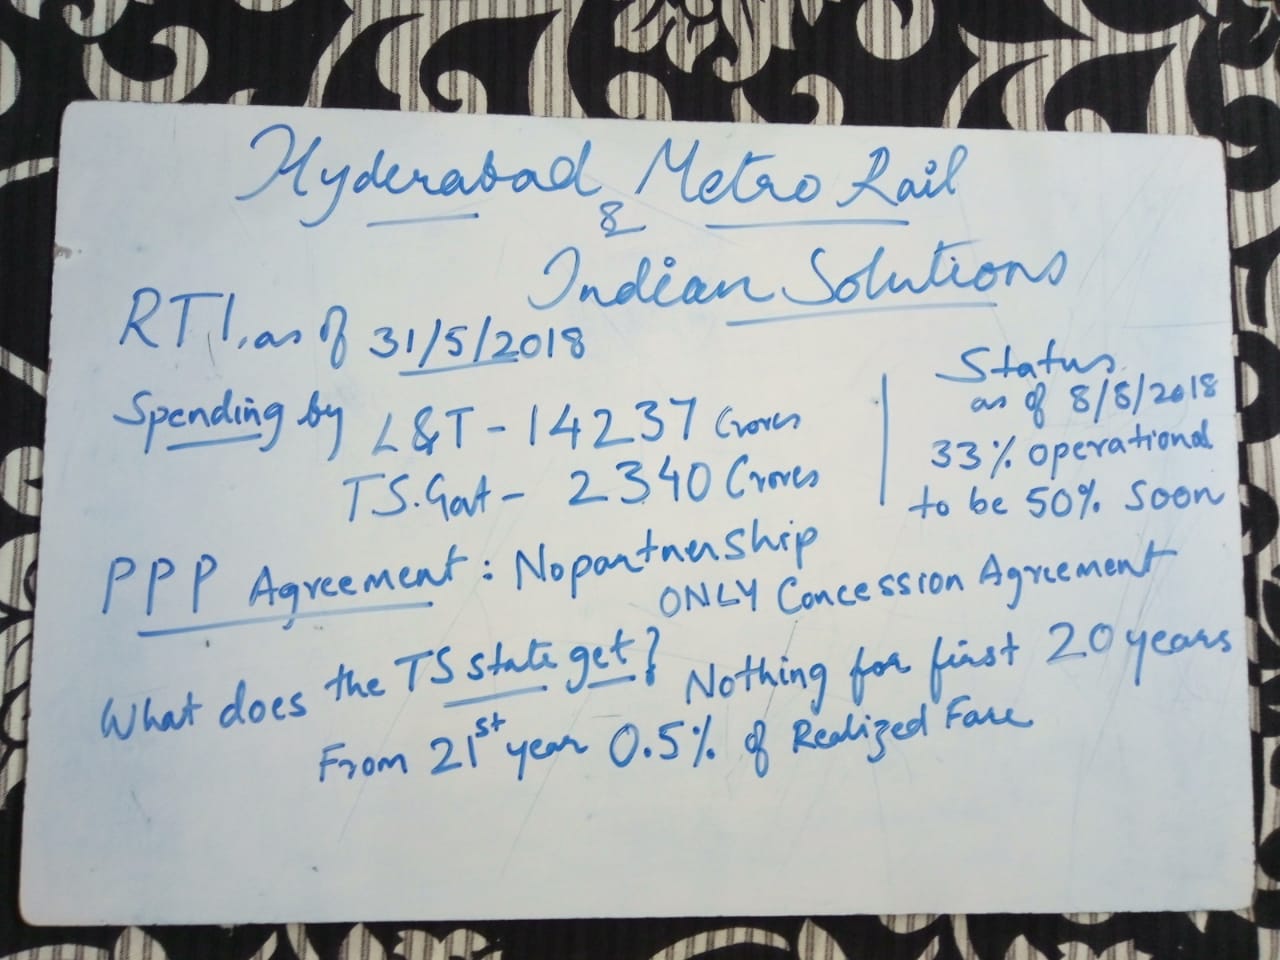 Hyderabad Metro Rail
&
Indian Solutions
RTI, as of 31/5/2018
Spending by L&T - 14237 Crores
TS.Govt - 2340 Crores
Status
as of 8/8/2018
33% operational
to be 50% soon
PPP Agreement : No partnership
ONLY Concession Agreement
What does the TS state get? Nothing for first 20 years
From 21st year 0.5% of Realized Fare